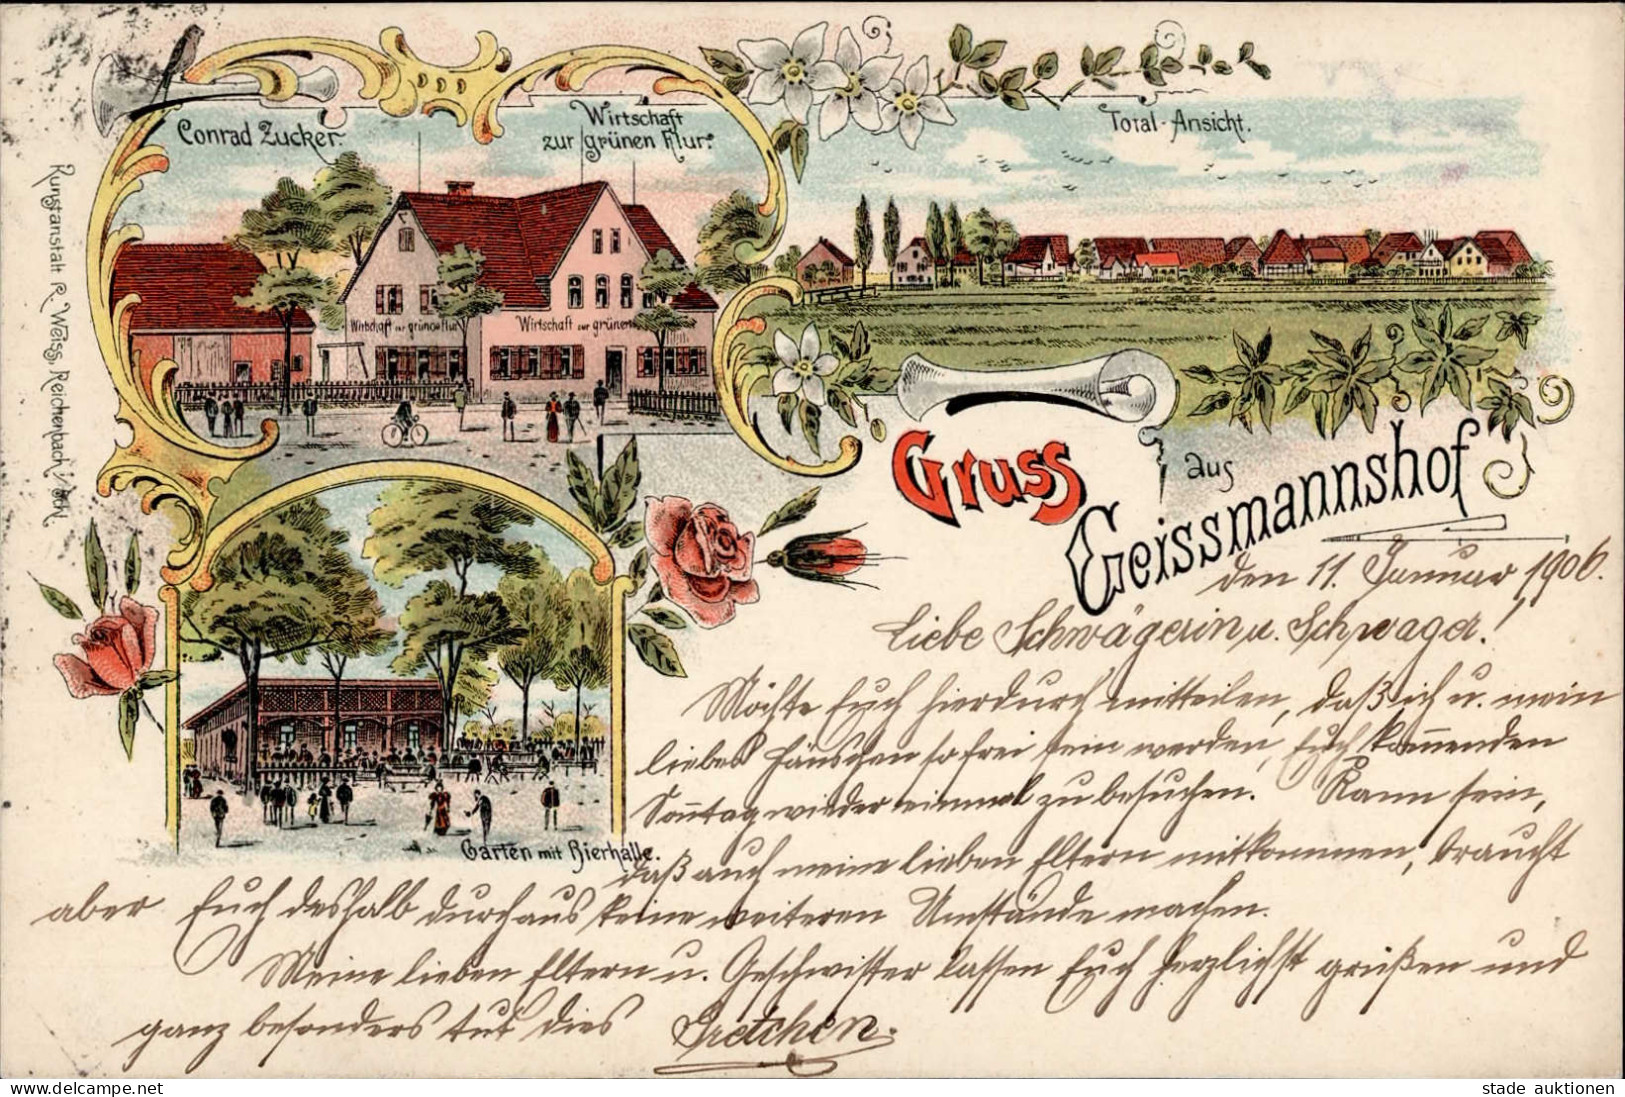 Conrad Zucker.
Wirtschaft
zur grünen Flur.
Total-Ansicht.
Kunstanstalt R. Weiss, Reichenbach i/Schl.
Wirtschaft zur grünen Flur
Wirtschaft zur grünen
Gruss aus Geissmannshof
Garten mit Bierhalle.
den 11. Januar 1906.
Liebe Schwägerin u. Schwager!
Möchte Euch hierdurch mitteilen, daß ich u. mein
liebes Hänschen so frei sein werden, Euch kommenden
Sonntag wieder einmal zu besuchen. Kann sein,
daß auch meine lieben Eltern mitkommen, braucht
aber Euch deshalb durchaus keine weiteren Umstände machen.
Meine lieben Eltern u. Geschwister lassen Euch herzlichst grüßen und
ganz besonders tut dies Gretchen.
delcampe.net
stade auktionen